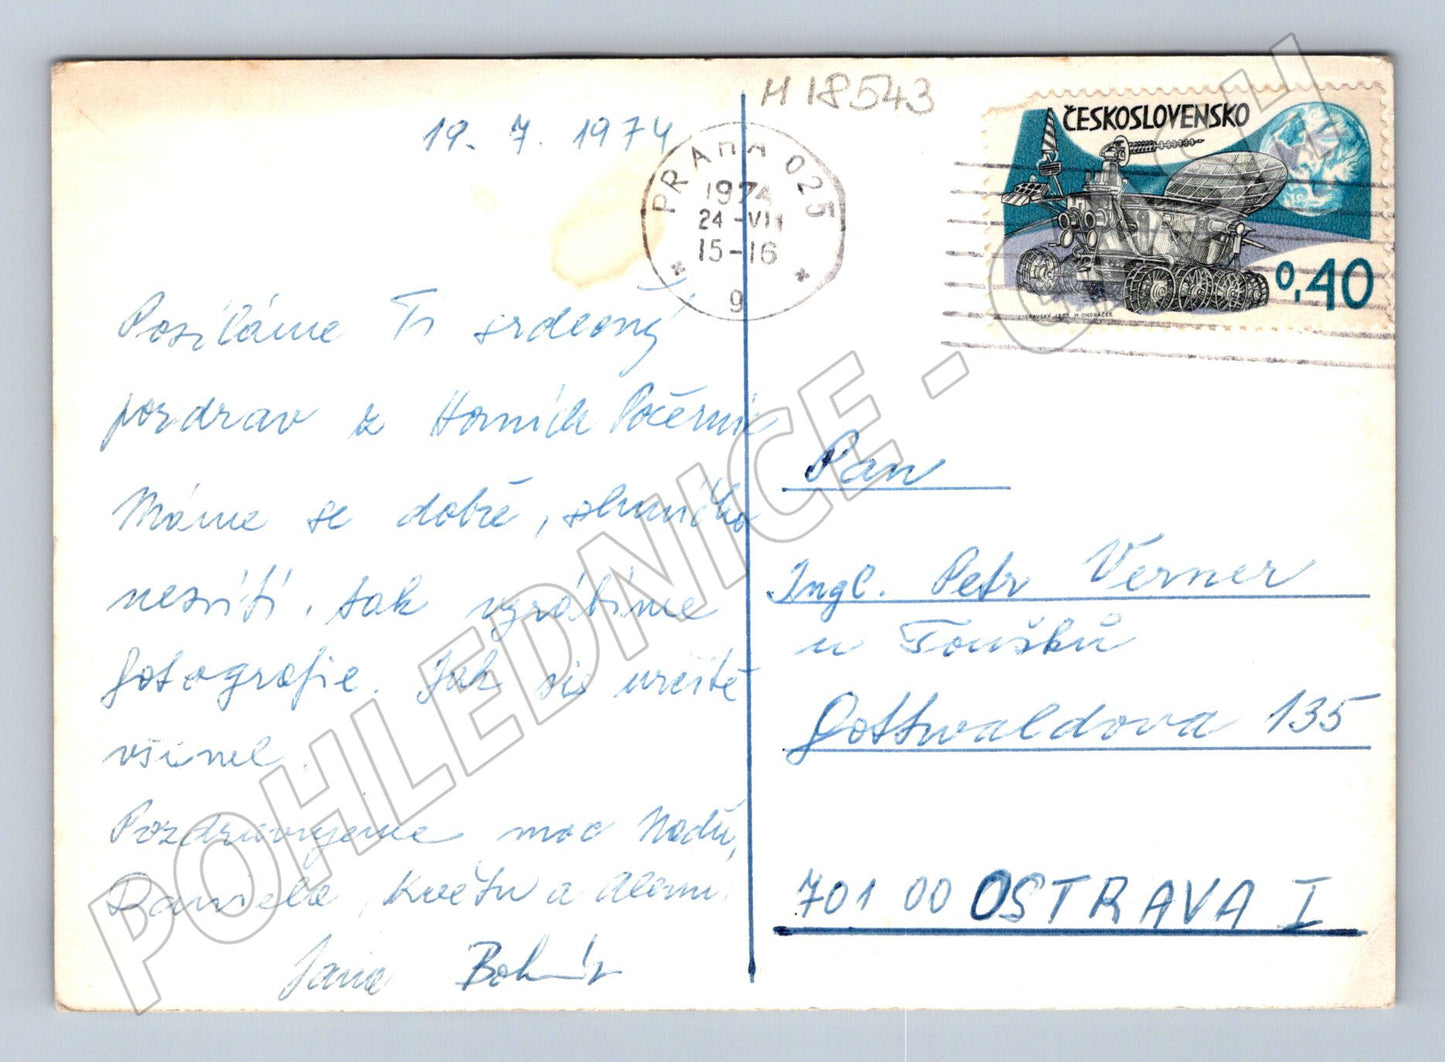 M 18543
19. 7. 1974
PRAHA 025
1974
24 -VII
15-16
* g *
ČESKOSLOVENSKO
0,40
Posíláme Ti srdečný
pozdrav z Horních Počernic
Máme se dobře, sluníčko
nesvítí, tak vyrábíme
fotografie. Jak sis určitě
všimel.
Pozdravujeme moc Naďu,
Daniela, Květu a Alenu.
Jana
Pan
Ingl. Petr Verner
u Toušků
Gottwaldova 135
701 00 OSTRAVA I
POHLEDNICE -